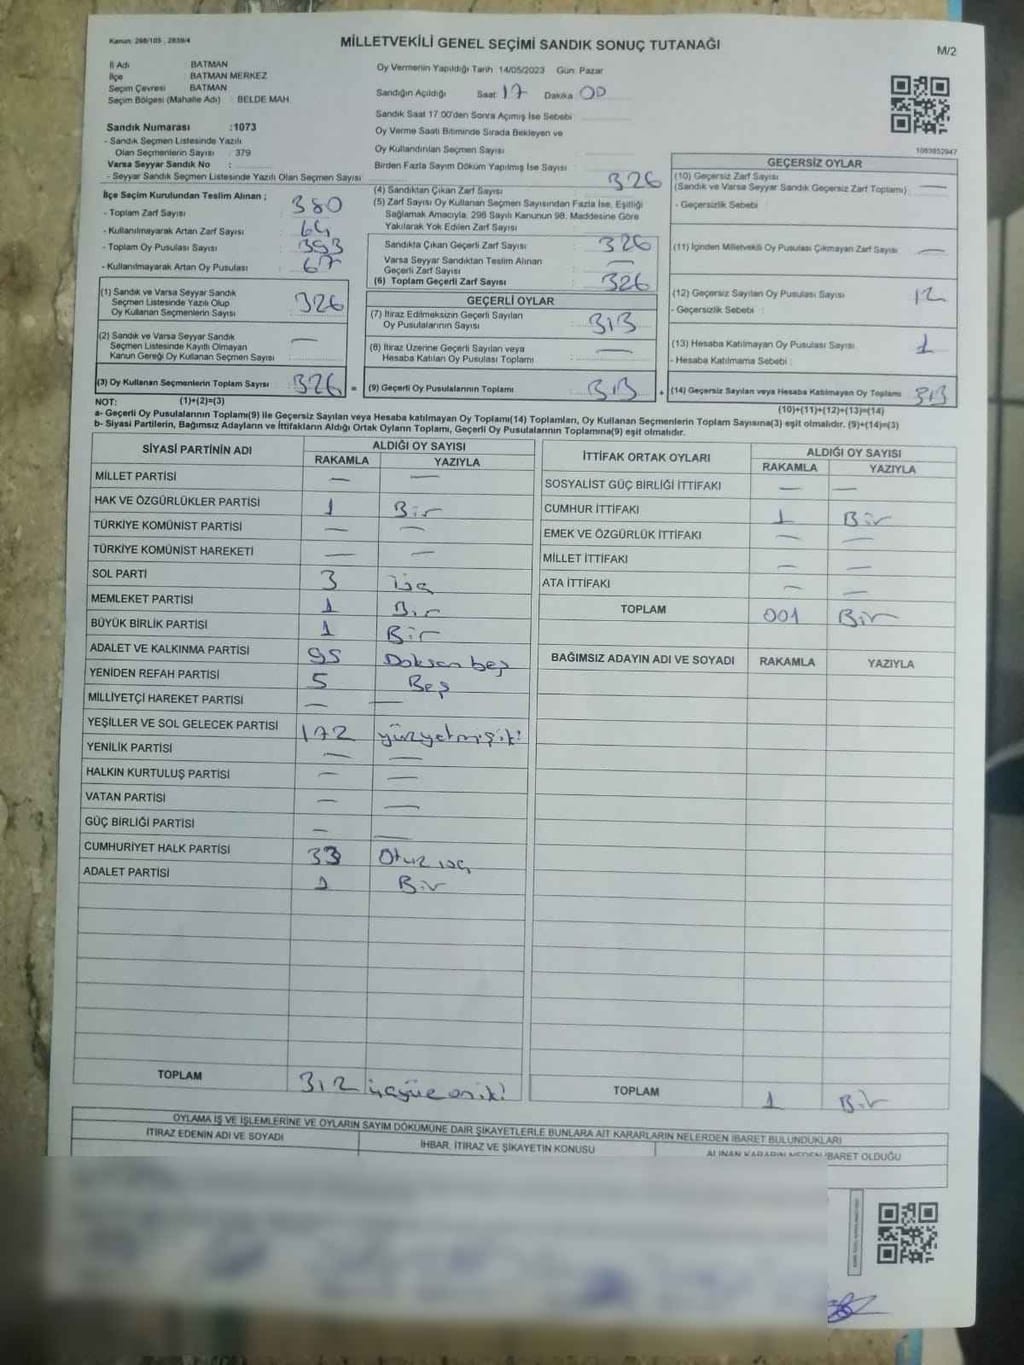 Kanun: 298/105 , 2839/4
MİLLETVEKİLİ GENEL SEÇİMİ SANDIK SONUÇ TUTANAĞI
M/2
İl Adı BATMAN
İlçe : BATMAN MERKEZ
Seçim Çevresi BATMAN
Seçim Bölgesi (Mahalle Adı) : BELDE MAH.
Sandık Numarası :1073
- Sandık Seçmen Listesinde Yazılı
Olan Seçmenlerin Sayısı : 379
Varsa Seyyar Sandık No :
- Seyyar Sandık Seçmen Listesinde Yazılı Olan Seçmen Sayısı
Oy Vermenin Yapıldığı Tarih 14/05/2023 Gün: Pazar
Sandığın Açıldığı Saat 17 Dakika 00
Sandık Saat 17.00'den Sonra Açılmış İse Sebebi
Oy Verme Saati Bitiminde Sırada Bekleyen ve
Oy Kullandırılan Seçmen Sayısı
Birden Fazla Sayım Döküm Yapılmış İse Sayısı
1083852947
İlçe Seçim Kurulundan Teslim Alınan ;
- Toplam Zarf Sayısı 380
- Kullanılmayarak Artan Zarf Sayısı 64
- Toplam Oy Pusulası Sayısı 393
- Kullanılmayarak Artan Oy Pusulası 67
(1) Sandık ve Varsa Seyyar Sandık
Seçmen Listesinde Yazılı Olup
Oy Kullanan Seçmenlerin Sayısı 326
(2) Sandık ve Varsa Seyyar Sandık
Seçmen Listesinde Kayıtlı Olmayan
Kanun Gereği Oy Kullanan Seçmen Sayısı : —
(3) Oy Kullanan Seçmenlerin Toplam Sayısı : 326 =
(4) Sandıktan Çıkan Zarf Sayısı 326
(5) Zarf Sayısı Oy Kullanan Seçmen Sayısından Fazla İse, Eşitliği
Sağlamak Amacıyla, 298 Sayılı Kanunun 98. Maddesine Göre
Yakılarak Yok Edilen Zarf Sayısı
Sandıkta Çıkan Geçerli Zarf Sayısı : 326
Varsa Seyyar Sandıktan Teslim Alınan
Geçerli Zarf Sayısı : —
(6) Toplam Geçerli Zarf Sayısı : 326
GEÇERLİ OYLAR
(7) İtiraz Edilmeksizin Geçerli Sayılan
Oy Pusulalarının Sayısı : 313
(8) İtiraz Üzerine Geçerli Sayılan veya
Hesaba Katılan Oy Pusulası Toplamı : —
(9) Geçerli Oy Pusulalarının Toplamı : 313 +
GEÇERSİZ OYLAR
(10) Geçersiz Zarf Sayısı
(Sandık ve Varsa Seyyar Sandık Geçersiz Zarf Toplamı) —
- Geçersizlik Sebebi :
(11) İçinden Milletvekili Oy Pusulası Çıkmayan Zarf Sayısı —
(12) Geçersiz Sayılan Oy Pusulası Sayısı 12
- Geçersizlik Sebebi :
(13) Hesaba Katılmayan Oy Pusulası Sayısı 1
- Hesaba Katılmama Sebebi :
(14) Geçersiz Sayılan veya Hesaba Katılmayan Oy Toplamı 313
NOT: (1)+(2)=(3)
(10)+(11)+(12)+(13)=(14)
a- Geçerli Oy Pusulalarının Toplamı(9) ile Geçersiz Sayılan veya Hesaba katılmayan Oy Toplamı(14) Toplamları, Oy Kullanan Seçmenlerin Toplam Sayısına(3) eşit olmalıdır. (9)+(14)=(3)
b- Siyasi Partilerin, Bağımsız Adayların ve İttifakların Aldığı Ortak Oyların Toplamı, Geçerli Oy Pusulalarının Toplamına(9) eşit olmalıdır.
SİYASİ PARTİNİN ADI ALDIĞI OY SAYISI
RAKAMLA YAZIYLA
MİLLET PARTİSİ — —
HAK VE ÖZGÜRLÜKLER PARTİSİ 1 Bir
TÜRKİYE KOMÜNİST PARTİSİ — —
TÜRKİYE KOMÜNİST HAREKETİ — —
SOL PARTİ 3 üç
MEMLEKET PARTİSİ 1 Bir
BÜYÜK BİRLİK PARTİSİ 1 Bir
ADALET VE KALKINMA PARTİSİ 95 Doksan beş
YENİDEN REFAH PARTİSİ 5 Beş
MİLLİYETÇİ HAREKET PARTİSİ — —
YEŞİLLER VE SOL GELECEK PARTİSİ 172 yüzyetmişiki
YENİLİK PARTİSİ — —
HALKIN KURTULUŞ PARTİSİ — —
VATAN PARTİSİ — —
GÜÇ BİRLİĞİ PARTİSİ — —
CUMHURİYET HALK PARTİSİ 33 Otuz üç
ADALET PARTİSİ 1 Bir
TOPLAM 312 üçyüz oniki
İTTİFAK ORTAK OYLARI ALDIĞI OY SAYISI
RAKAMLA YAZIYLA
SOSYALİST GÜÇ BİRLİĞİ İTTİFAKI — —
CUMHUR İTTİFAKI 1 Bir
EMEK VE ÖZGÜRLÜK İTTİFAKI — —
MİLLET İTTİFAKI — —
ATA İTTİFAKI — —
TOPLAM 001 Bir
BAĞIMSIZ ADAYIN ADI VE SOYADI RAKAMLA YAZIYLA
TOPLAM 1 Bir
OYLAMA İŞ VE İŞLEMLERİNE VE OYLARIN SAYIM DÖKÜMÜNE DAİR ŞİKAYETLERLE BUNLARA AİT KARARLARIN NELERDEN İBARET BULUNDUKLARI
İTİRAZ EDENİN ADI VE SOYADI İHBAR, İTİRAZ VE ŞİKAYETİN KONUSU ALINAN KARARIN NEDEN İBARET OLDUĞU